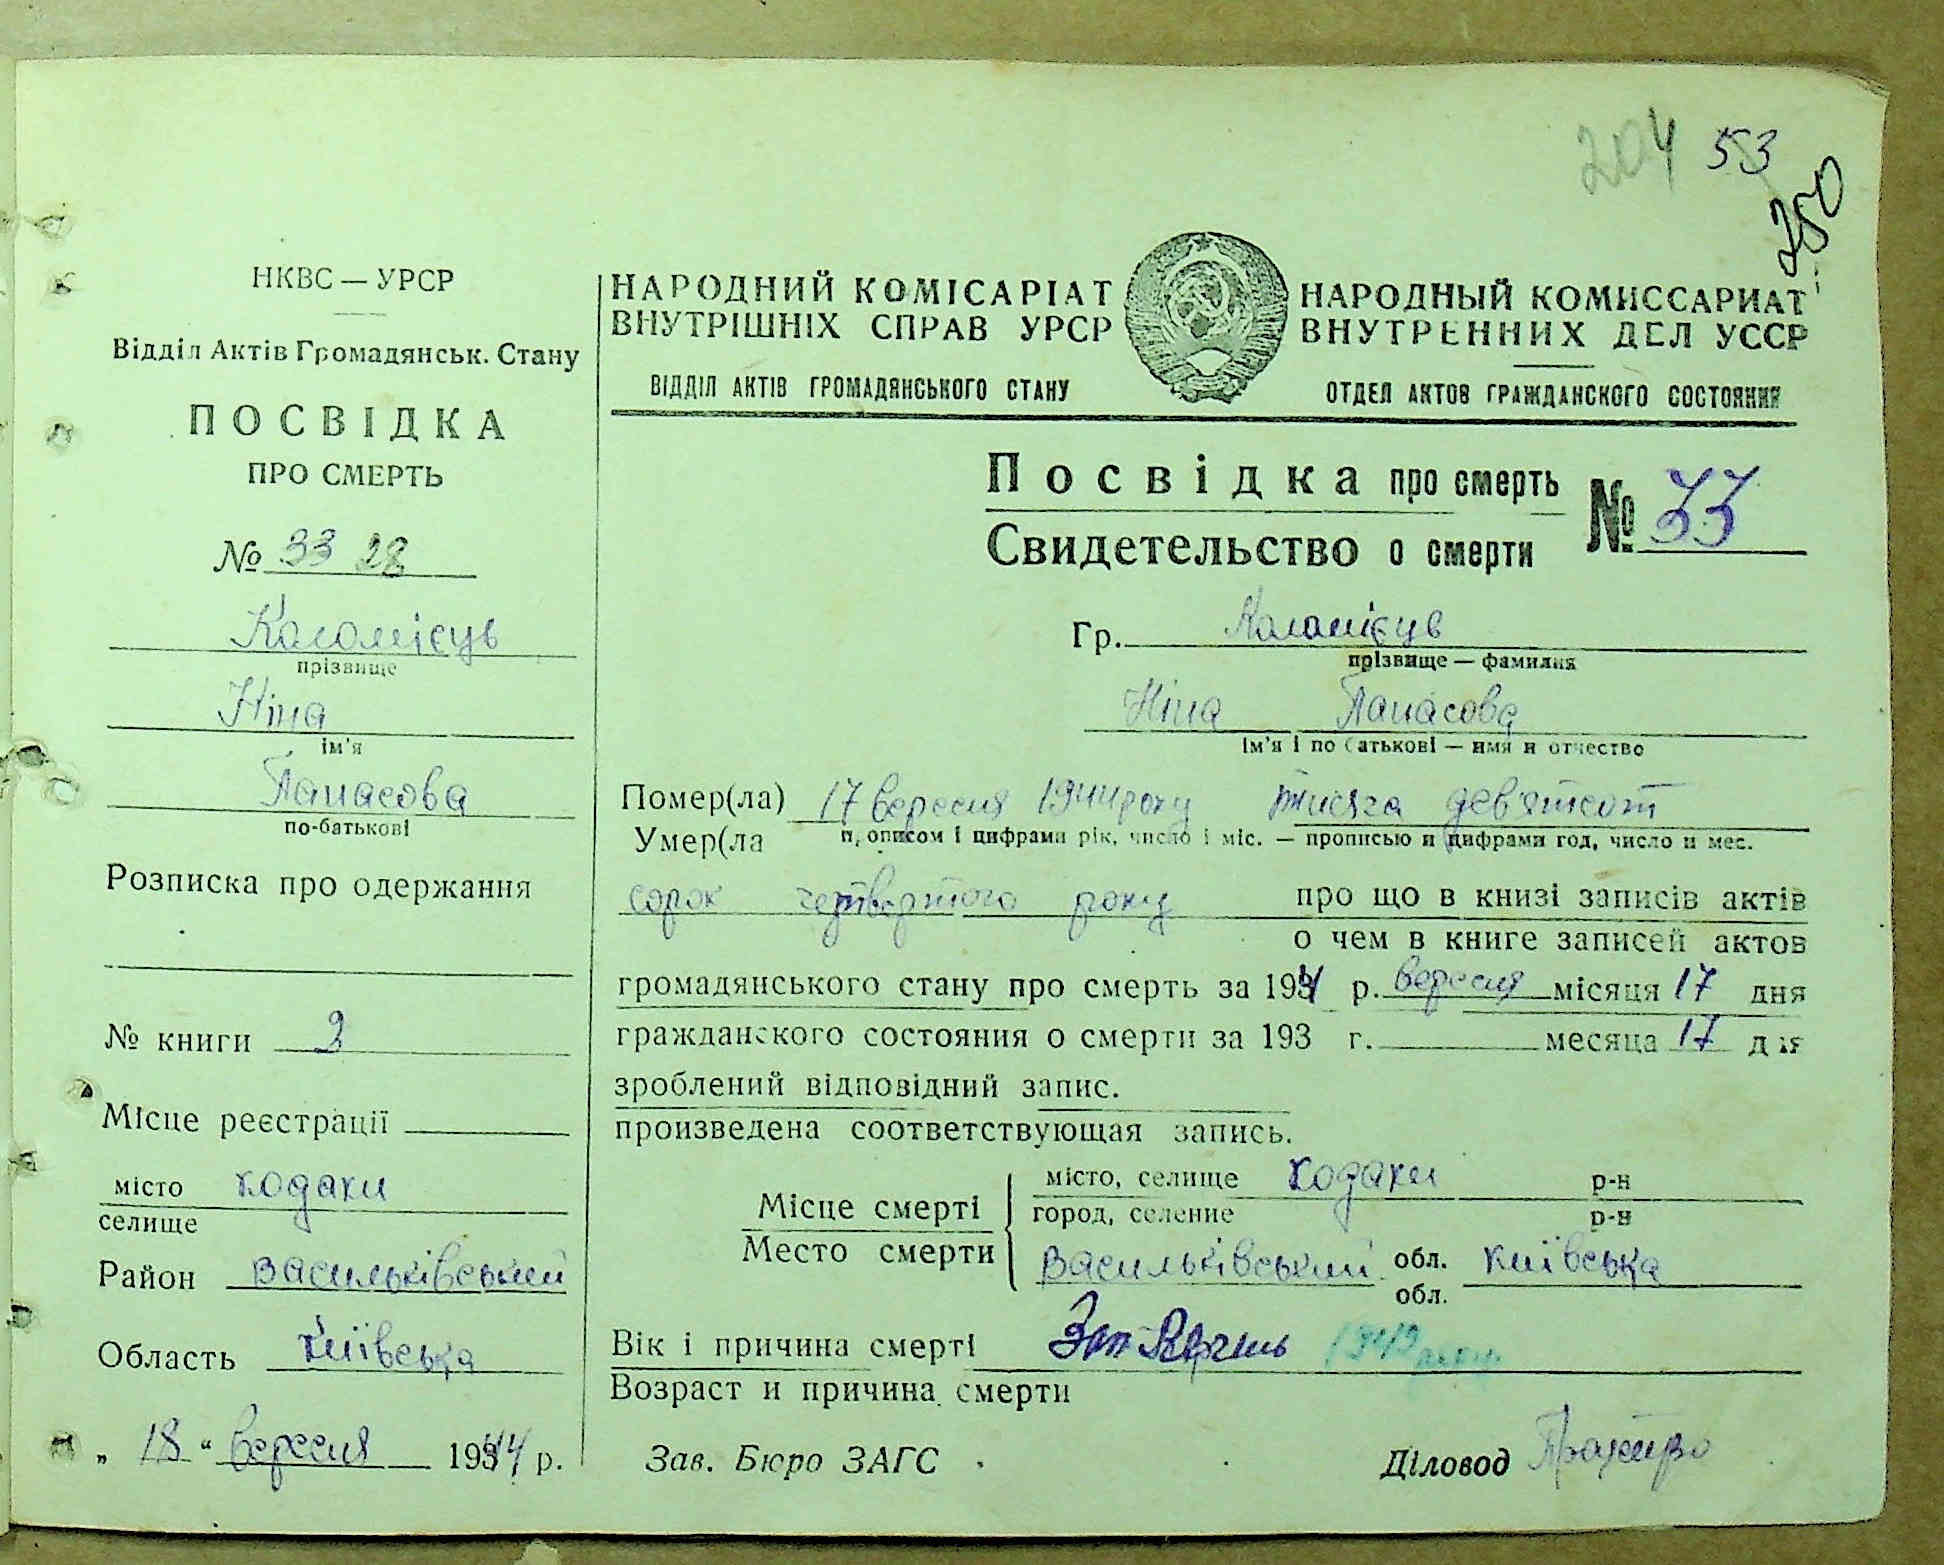 204 53
250
НКВС — УРСР
Відділ Актів Громадянськ. Стану
ПОСВІДКА
ПРО СМЕРТЬ
№ 33 28
Коломієць
прізвище
Ніна
ім'я
Панасова
по-батькові
Розписка про одержання
№ книги 2
Місце реєстрації
місто Кодаки
селище
Район Васильківський
Область Київська
„ 18 “ вересня 1944 р.
НАРОДНИЙ КОМІСАРІАТ
ВНУТРІШНІХ СПРАВ УРСР
ВІДДІЛ АКТІВ ГРОМАДЯНСЬКОГО СТАНУ
НАРОДНЫЙ КОМИССАРИАТ
ВНУТРЕННИХ ДЕЛ УССР
ОТДЕЛ АКТОВ ГРАЖДАНСКОГО СОСТОЯНИЯ
Посвідка про смерть
Свидетельство о смерти
№ 33
Гр. Коломієць
прізвище — фамилия
Ніна Панасова
ім'я і по батькові — имя и отчество
Помер(ла) 17 вересня 1944 року тисяча дев'ятсот
Умер(ла прописом і цифрами рік, число і міс. — прописью и цифрами год, число и мес.
сорок четвертого року про що в книзі записів актів
о чем в книге записей актов
громадянського стану про смерть за 1944 р. вересня місяця 17 дня
гражданского состояния о смерти за 193 г. месяца 17 дня
зроблений відповідний запис.
произведена соответствующая запись.
Місце смерті місто, селище Кодаки р-н
Место смерти город, селение р-н
Васильківський обл. Київська
обл.
Вік і причина смерті 1949
Возраст и причина смерти
Зав. Бюро ЗАГС
Діловод